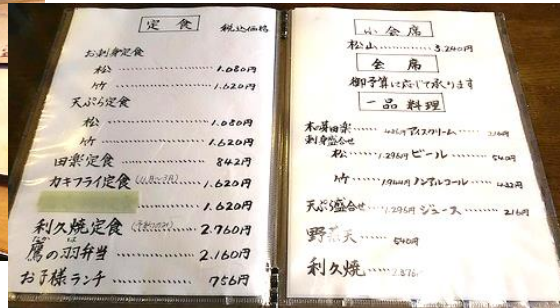 定食 税込価格
お刺身定食
松 1.080円
竹 1.620円
天ぷら定食
松 1.080円
竹 1.620円
田楽定食 842円
カキフライ定食 1.620円
1.620円
利久焼定食 2.760円
鷹の羽弁当 2.160円
お子様ランチ 756円
小会席
松山 3.240円
会席
御予算に応じて承ります
一品料理
木の芽田楽 アイスクリーム 216円
刺身盛合せ
松 1.296円 ビール 540円
竹 1.944円 ノンアルコール 432円
天ぷら盛合せ 1.296円 ジュース 216円
野菜天 540円
利久焼